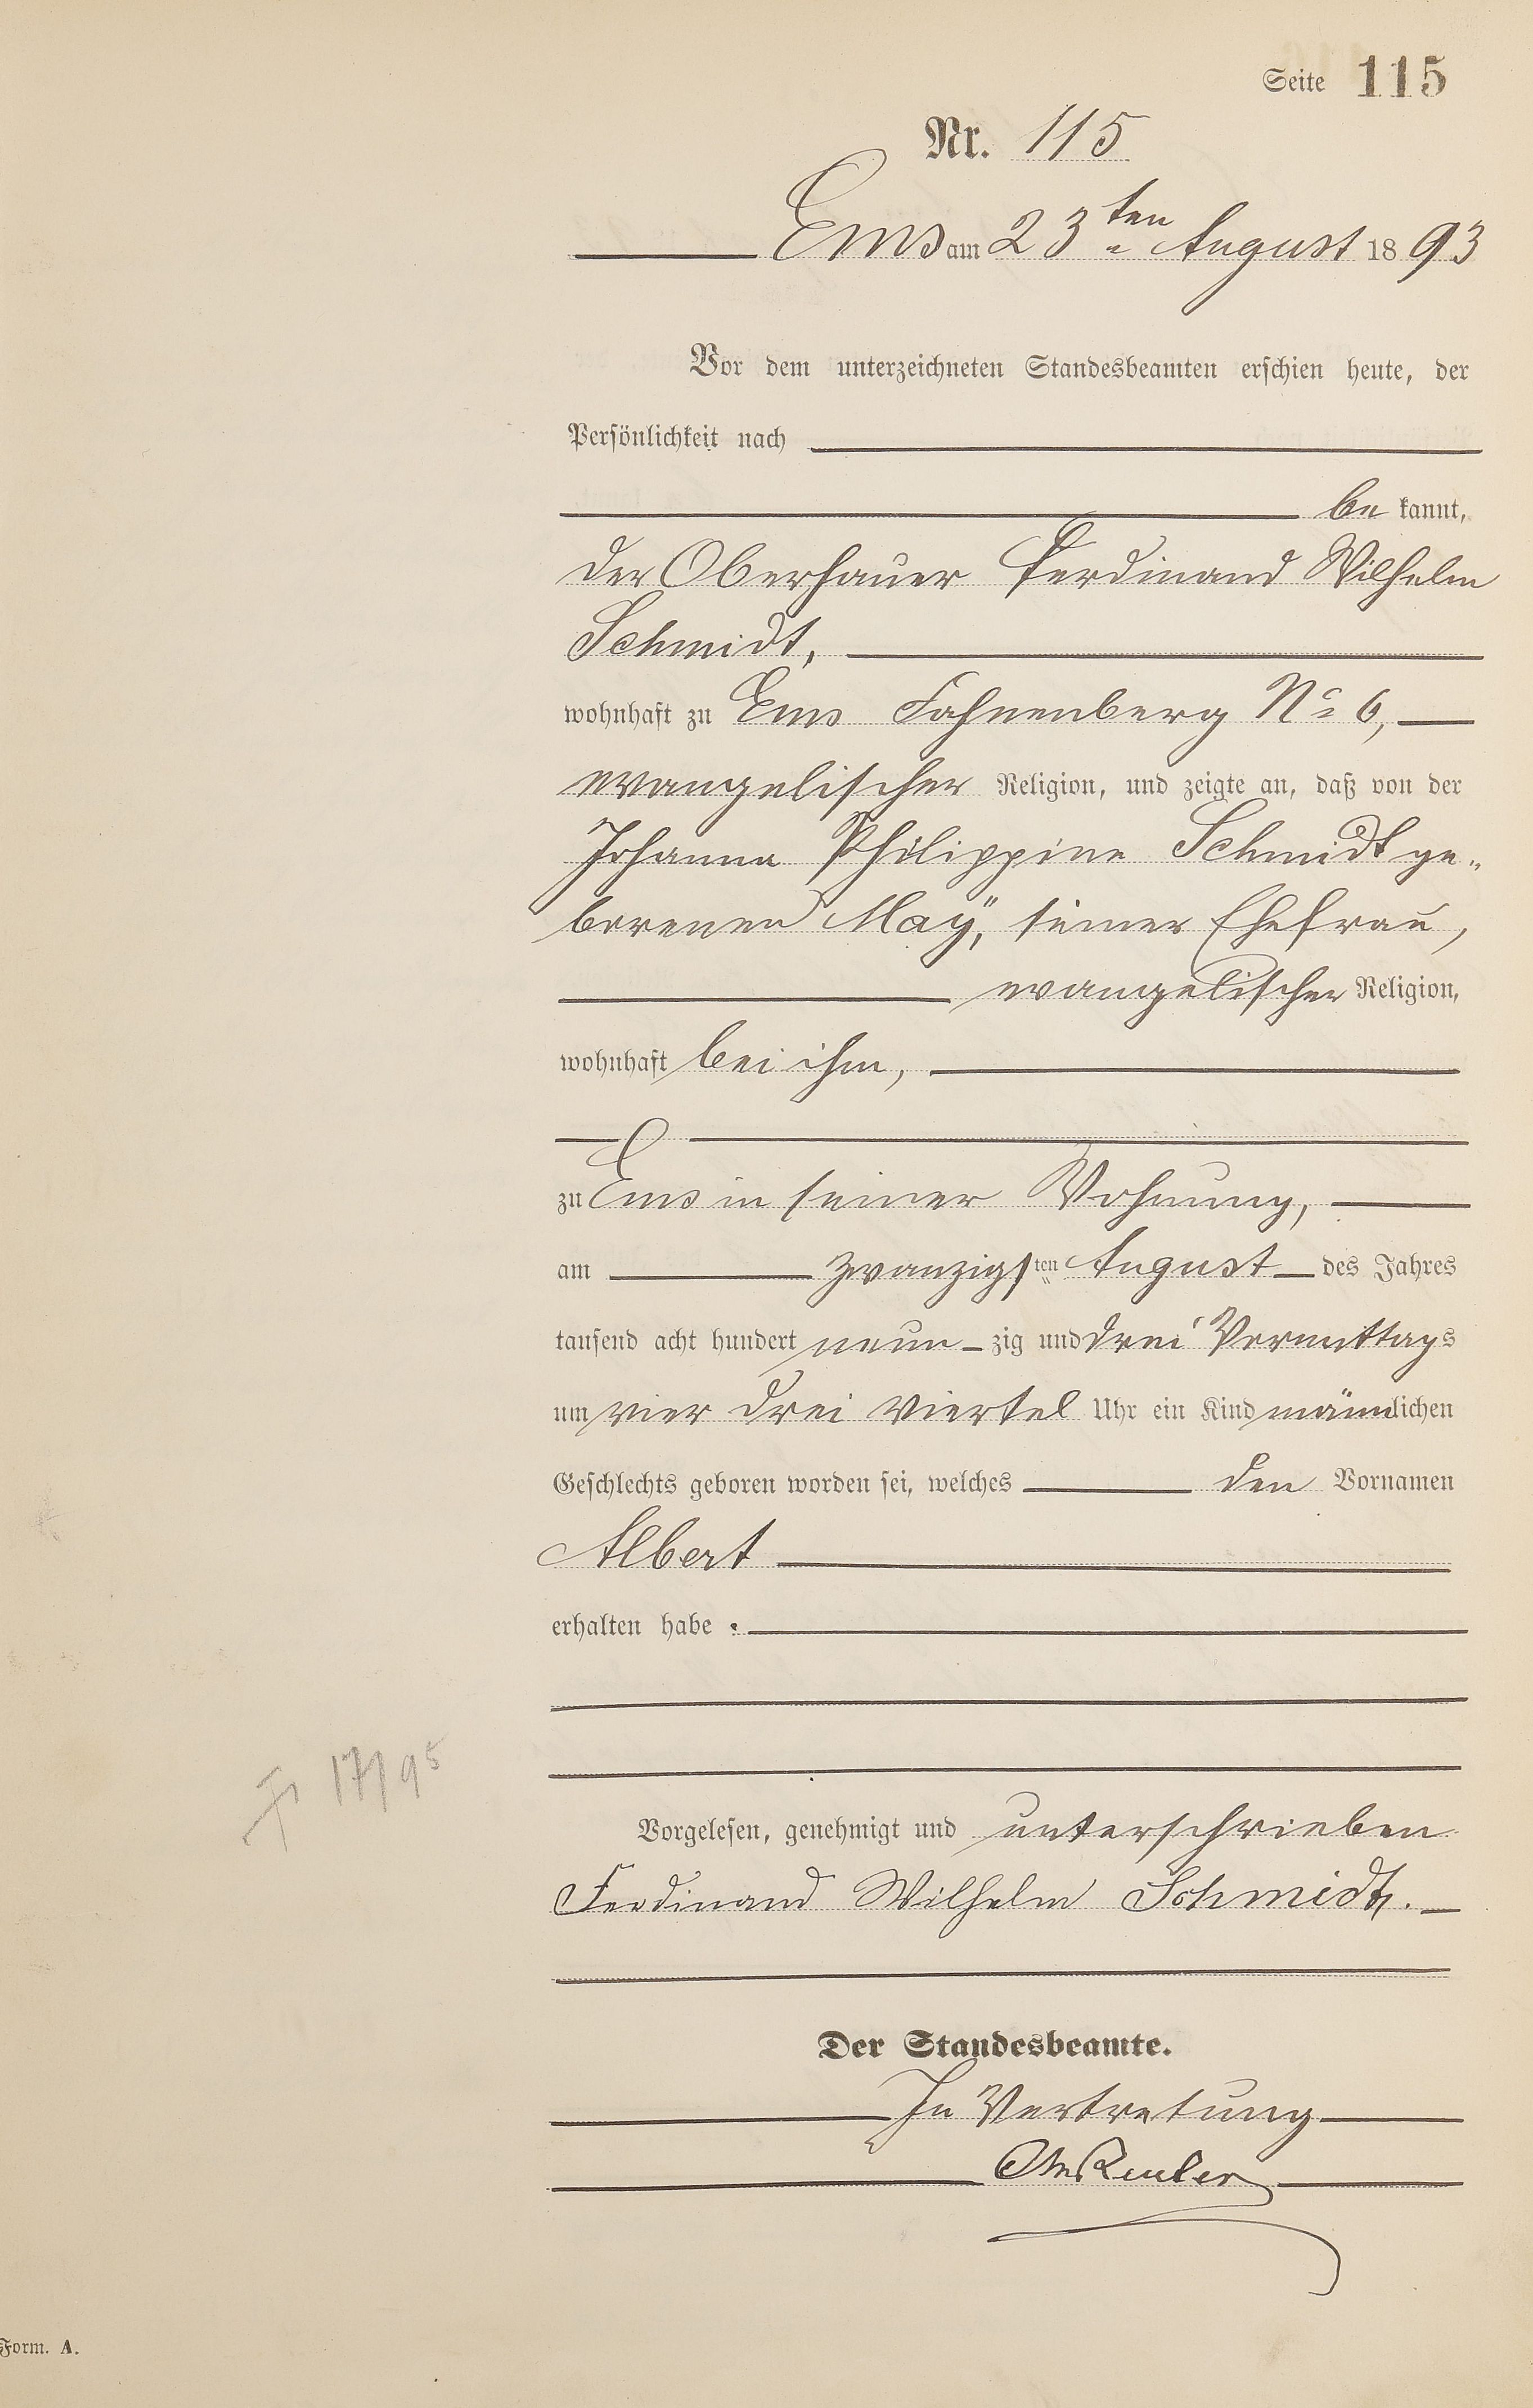 Seite 115
Nr. 115
Ems am 23ten August 1893
Vor dem unterzeichneten Standesbeamten erschien heute, der
Persönlichkeit nach
be kannt,
der Oberhauer Ferdinand Wilhelm
Schmidt,
wohnhaft zu Ems Fahnenberg No 6,
evangelischer Religion, und zeigte an, daß von der
Johanna Philippine Schmidt ge„
borenen „Maÿ“, seiner Ehefrau,
evangelischer Religion,
wohnhaft bei ihm,
zu Ems in seiner Wohnung,
am zwanzigsten August des Jahres
tausend acht hundert neun zig und drei Vormittags
um vier drei viertel Uhr ein Kind männlichen
Geschlechts geboren worden sei, welches den Vornamen
Albert
erhalten habe.
17/95
Vorgelesen, genehmigt und unterschrieben
Ferdinand Wilhelm Schmidt.
Der Standesbeamte.
In Vertretung
Form. A.